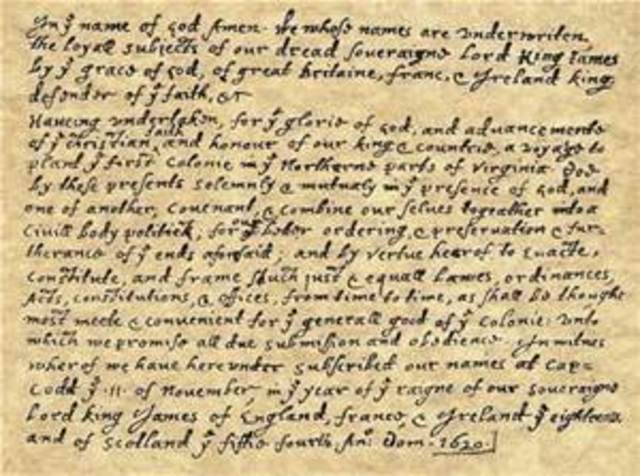 In yͤ name of god Amen. We whose names are underwriten,
the loyall subjects of our dread soveraigne Lord King James
by yͤ grace of god, of great britaine, franc, & Ireland king,
defender of yͤ faith, &c
Haveing undertaken, for yͤ glorie of god, and advancemente
of yͤ christian faith and honour of our king & countrie, a voyage to
plant yͤ first colonie in yͤ Northerne parts of Virginia. Doe
by these presents solemnly & mutualy in yͤ presence of god, and
one of another, covenant, & combine our selves togeather into a
Civill body politick, for our better ordering, & preservation & fur=
therance of yͤ ends aforesaid; and by vertue hearof to enacte,
constitute, and frame shuch just & equall lawes, ordinances,
Acts, constitutions, & offices, from time to time, as shall be thought
most meete & convenient for yͤ generall good of yͤ colonie: unto
which we promise all due submission and obedience. In witnes
wherof we have hereunder subscribed our names at Cap=
Codd yͤ .11. of November, in yͤ year of yͤ raigne of our soveraigne
Lord king James of England, france, & Ireland yͤ eighteenth
and of Scotland yͤ fiftie fourth. Anͦ: Dom. 1620.